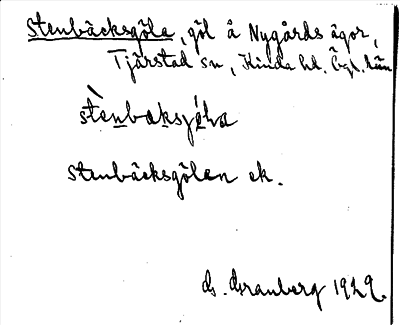 Stenbäcksgöla, göl å Nygårds ägor,
Tjärstad sn, Kinda hd. Ögl. län
Stenbäcksgölen ek.
G. Granberg 1929.